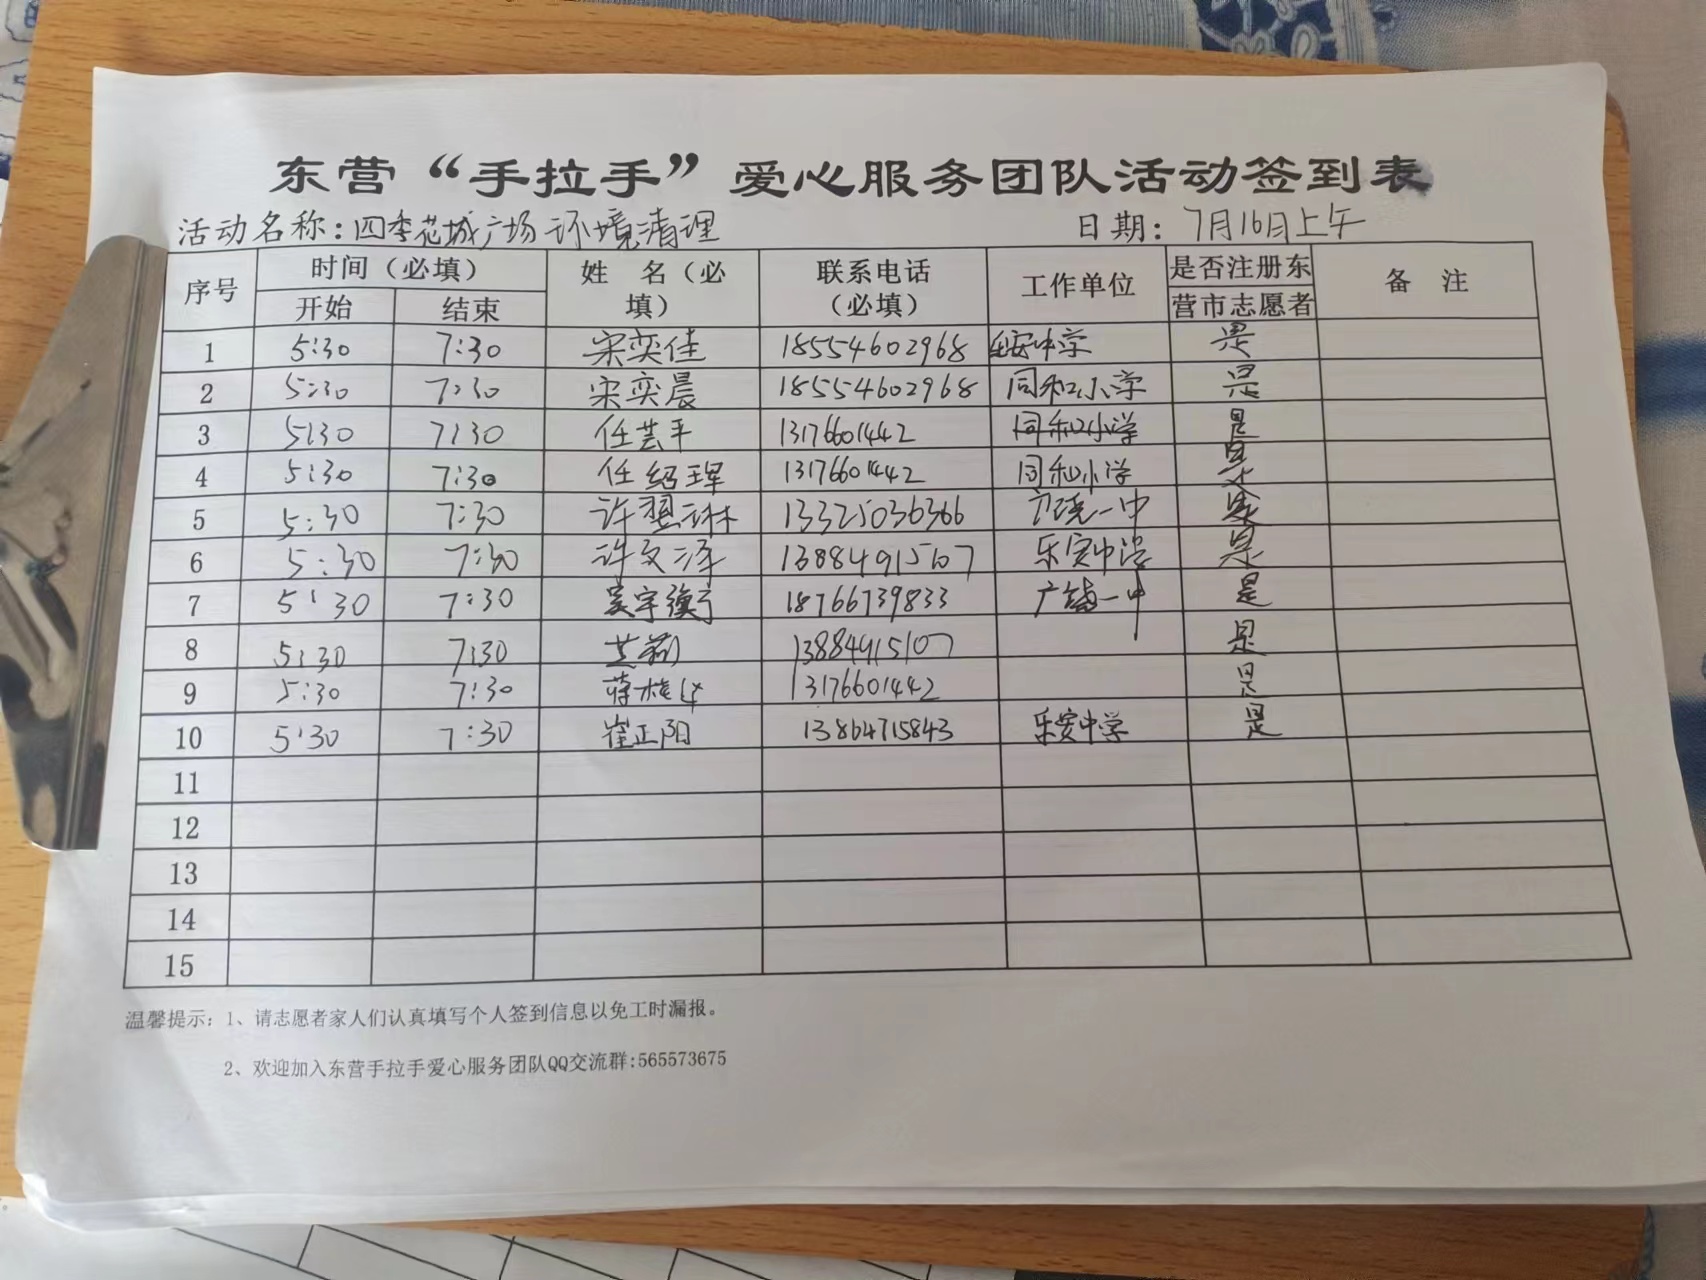 东营“手拉手”爱心服务团队活动签到表
活动名称：四季花城广场环境清理 日期：7月16日上午
序号 时间（必填） 姓 名（必填） 联系电话（必填） 工作单位 是否注册东营市志愿者 备 注
开始 结束
1 5:30 7:30 宋奕佳 18554602968 乐安中学 是
2 5:30 7:30 宋奕晨 18554602968 同和小学 是
3 5:30 7:30 任芸平 13176601442 同和小学 是
4 5:30 7:30 任绍珲 13176601442 同和小学 是
5 5:30 7:30 许 13325036366 广饶一中 是
6 5:30 7:30 许文泽 13884915107 乐安中学 是
7 5:30 7:30 吴宇 18766739833 广饶一中 是
8 5:30 7:30 13884915107 是
9 5:30 7:30 蒋 13176601442 是
10 5:30 7:30 崔正阳 13864715843 乐安中学 是
11
12
13
14
15
温馨提示：1、请志愿者家人们认真填写个人签到信息以免工时漏报。
2、欢迎加入东营手拉手爱心服务团队QQ交流群:565573675